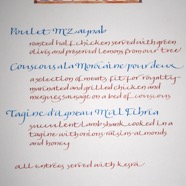 Poulet M'Zaynab
roasted half chicken served with green
olives and preserved lemons from our tree
Couscous a la Marocaine pour deux
a selection of meats fit for royalty -
marinated and grilled chicken and
merguez sausage on a bed of couscous
Tagine d'agneau M'al Fihria
succulent lamb shank, cooked in a
tagine with onions raisins almonds
and honey
all entrées served with kesra